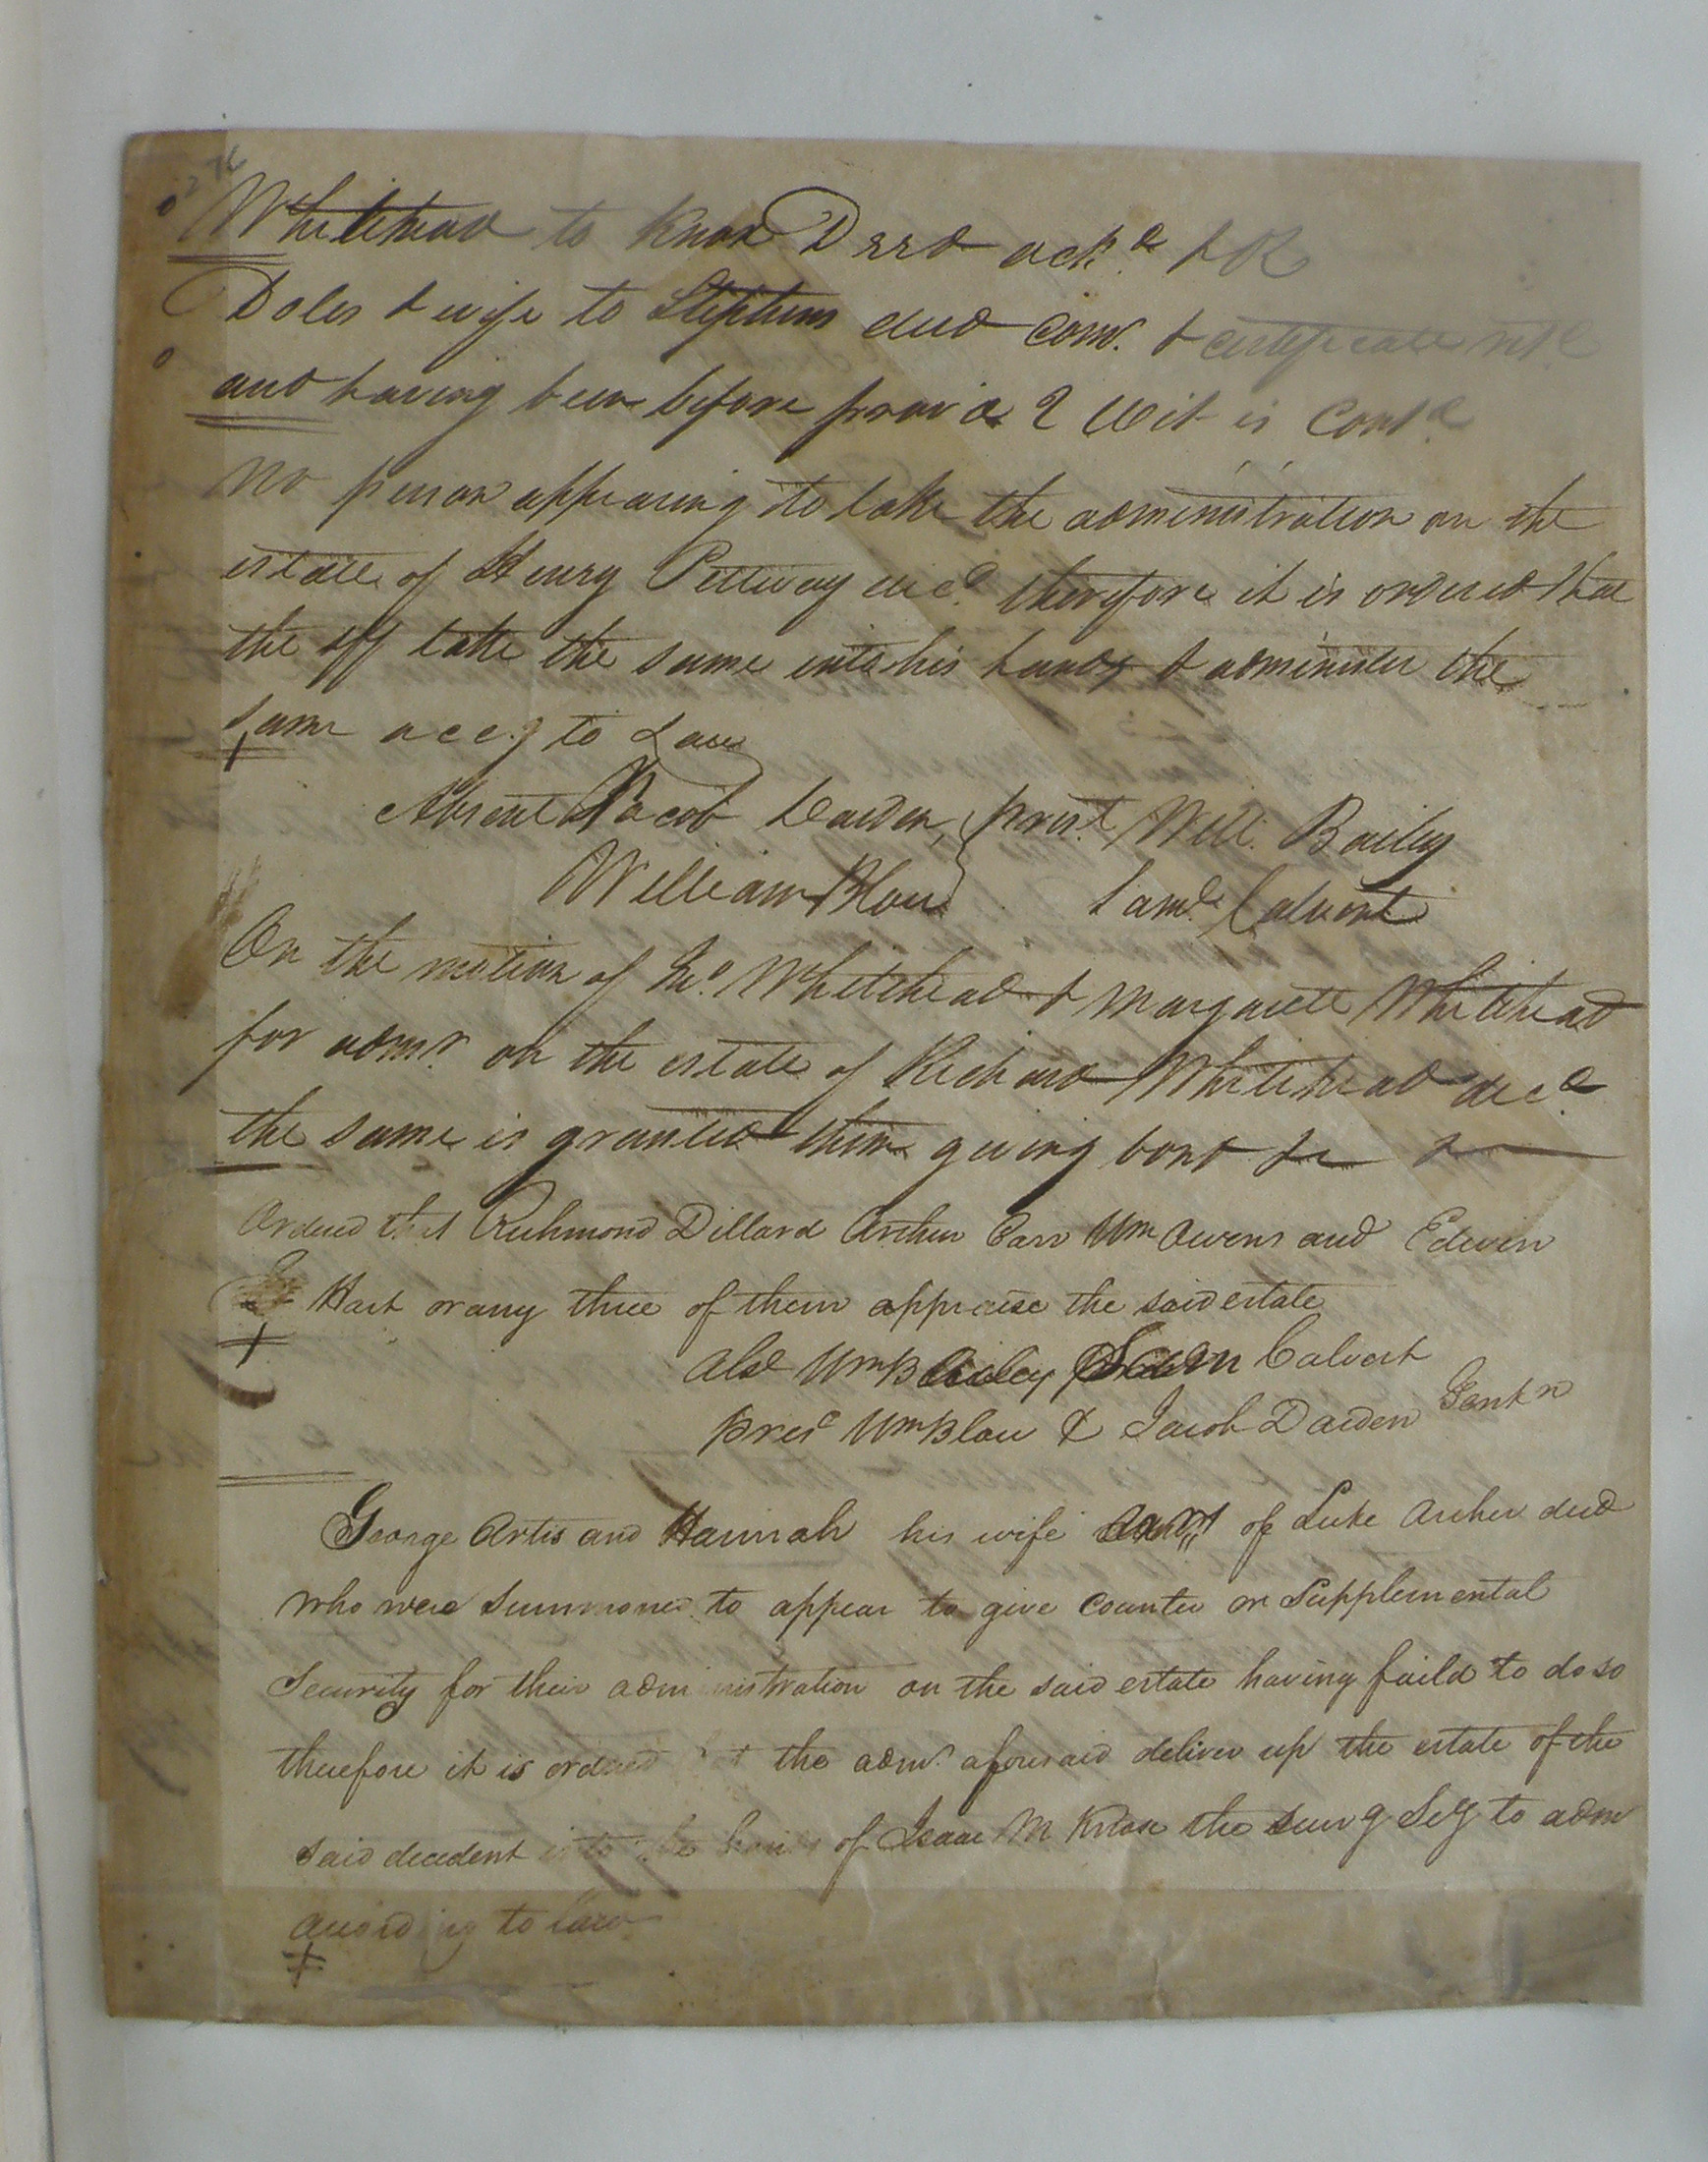 Whitehead to Knox Deed ackd. & R
Doles & wife to Stephens deed Com. & certificate retd
and having been before provd 2 Wit is Contd.
No person appearing to take the administration on the
estate of Henry Pettway decd. therefore it is ordered that
the Sff take the same into his hands & administer the
same accg to Law
Absent Jacob Darden, prest. Will. Bailey
William Blow Saml. Calvert
On the motion of Jno. Whitehead & Margarett Whitehead
for admn. on the estate of Richard Whitehead decd.
the same is granted them giving bond &c &
Ordered that Richmond Dillard Archer Carr Wm Owens and Edwin
Hart or any three of them appraise the said estate
Abst Wm Bailey Sam Calvert
Prest Wm Blow & Jacob Darden Gentn
George Artis and Hannah his wife of Luke Archer decd
who were Summoned to appear to give Counter or Supplemental
Security for their administration on the said estate having faild to do so
therefore it is ordered that the admr. aforesaid deliver up the estate of the
said decedent into the hands of Isaac M the Seur g to adm
according to law